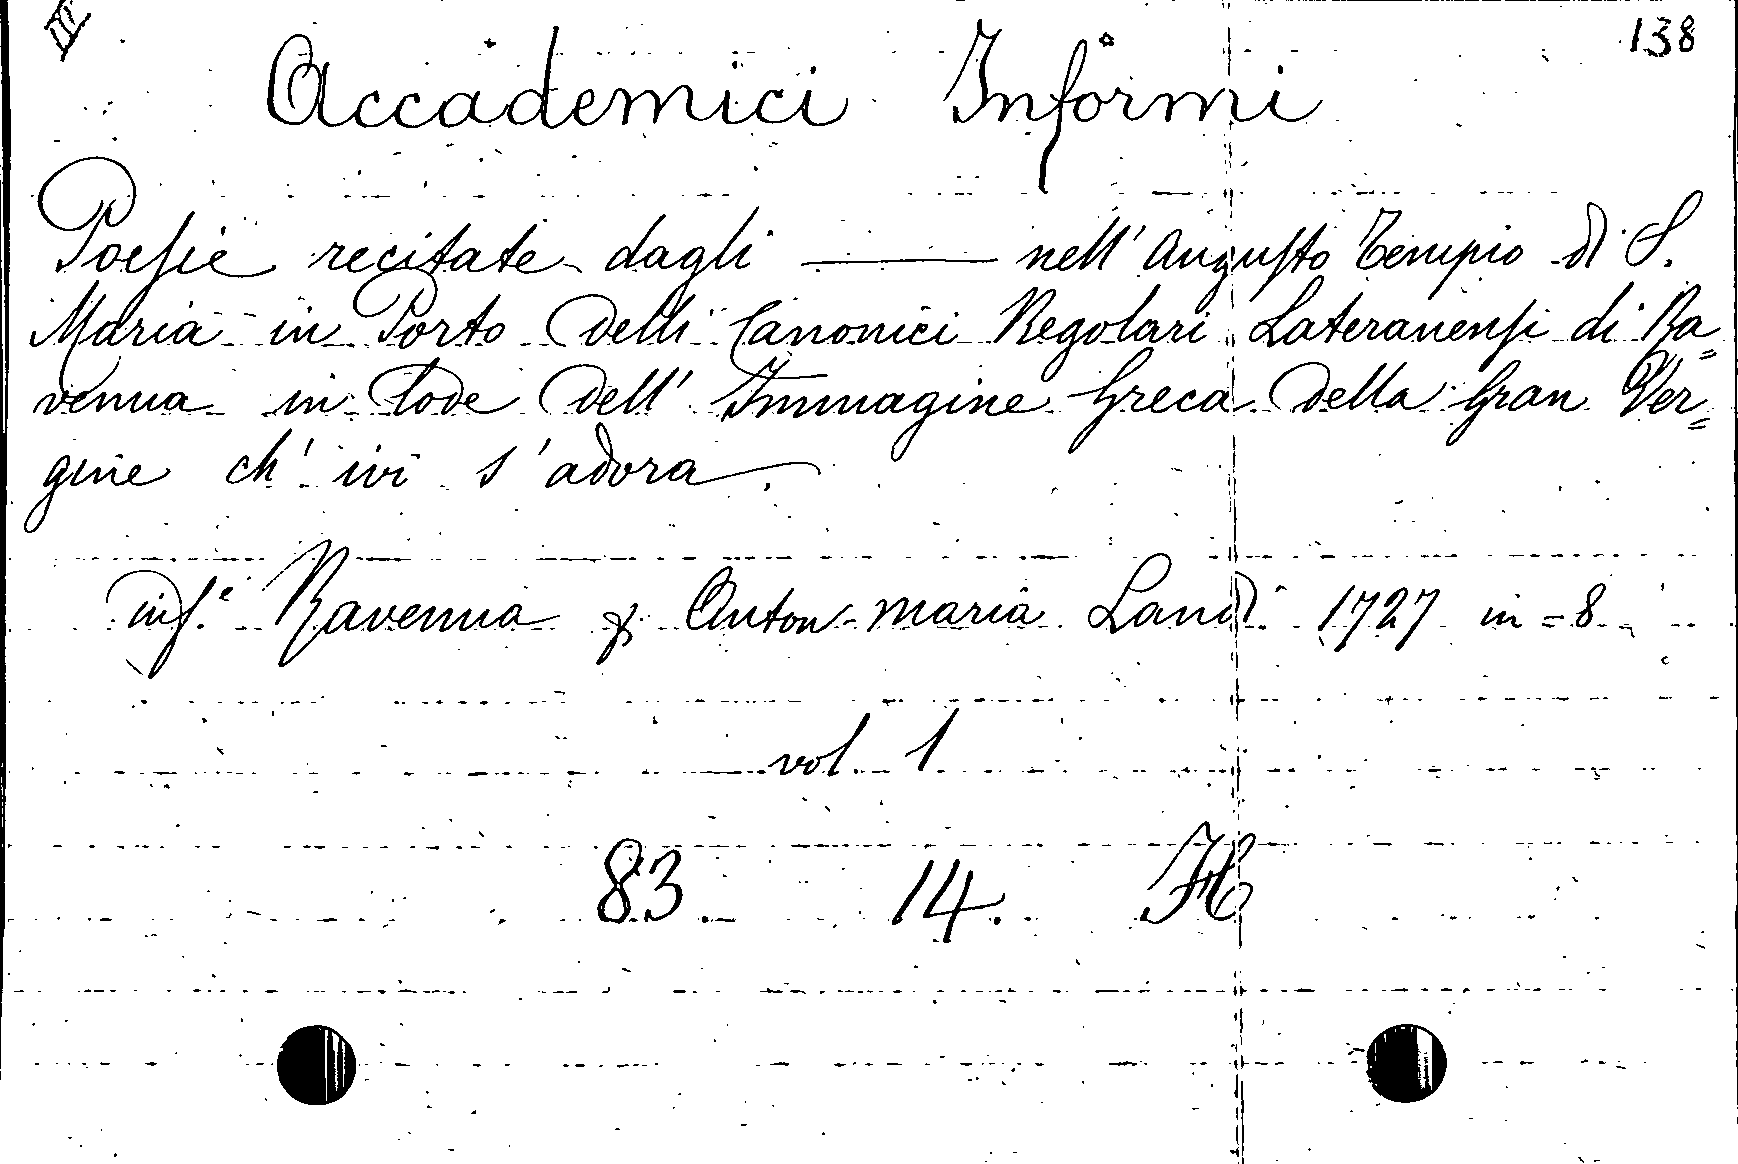 138
Accademici Informi
Poesie recitate dagli —— nell' Augusto Tempio di S.
Maria in Porto delli Canonici Regolari Lateranensi di Ra=
venna in lode dell' Immagine Greca della Gran Ver=
gine ch' ivi s'adora.
Ravenna Anton-Maria Landi 1727 in=8
vol. 1
83. 14. H